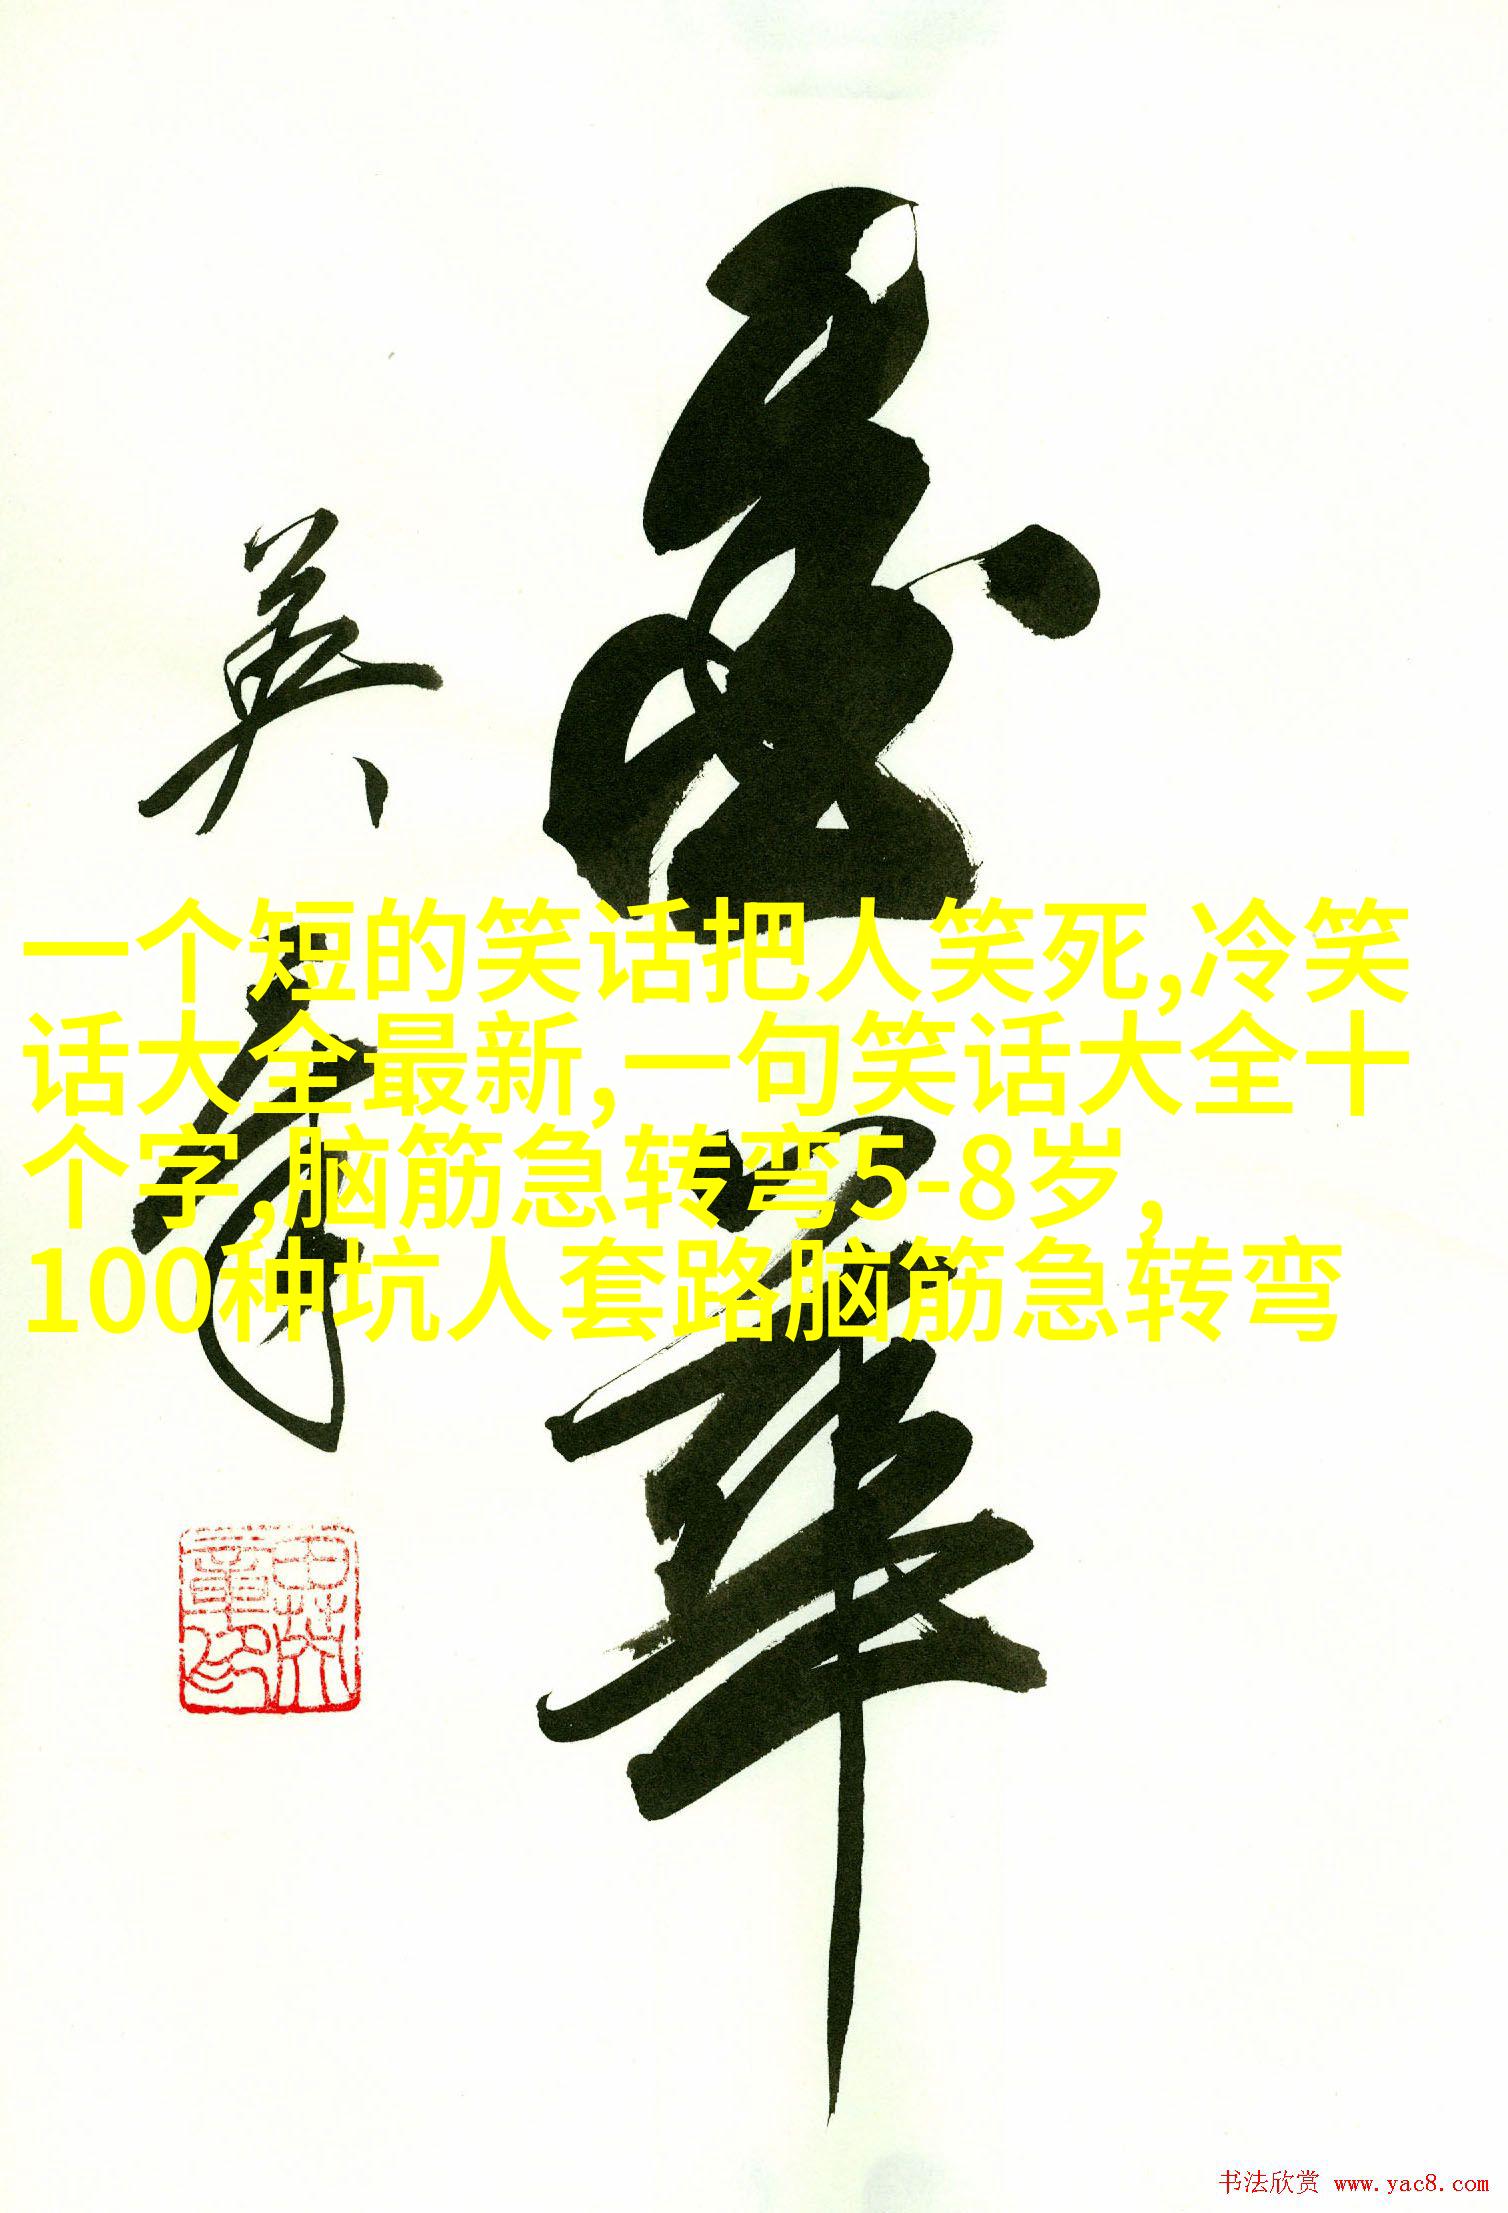 英
章
一个短的笑话把人笑死,冷笑
话大全最新,一句笑话大全十
个字,脑筋急转弯5-8岁，
100种坑人套路脑筋急转弯
书法欣赏 www.yac8.com